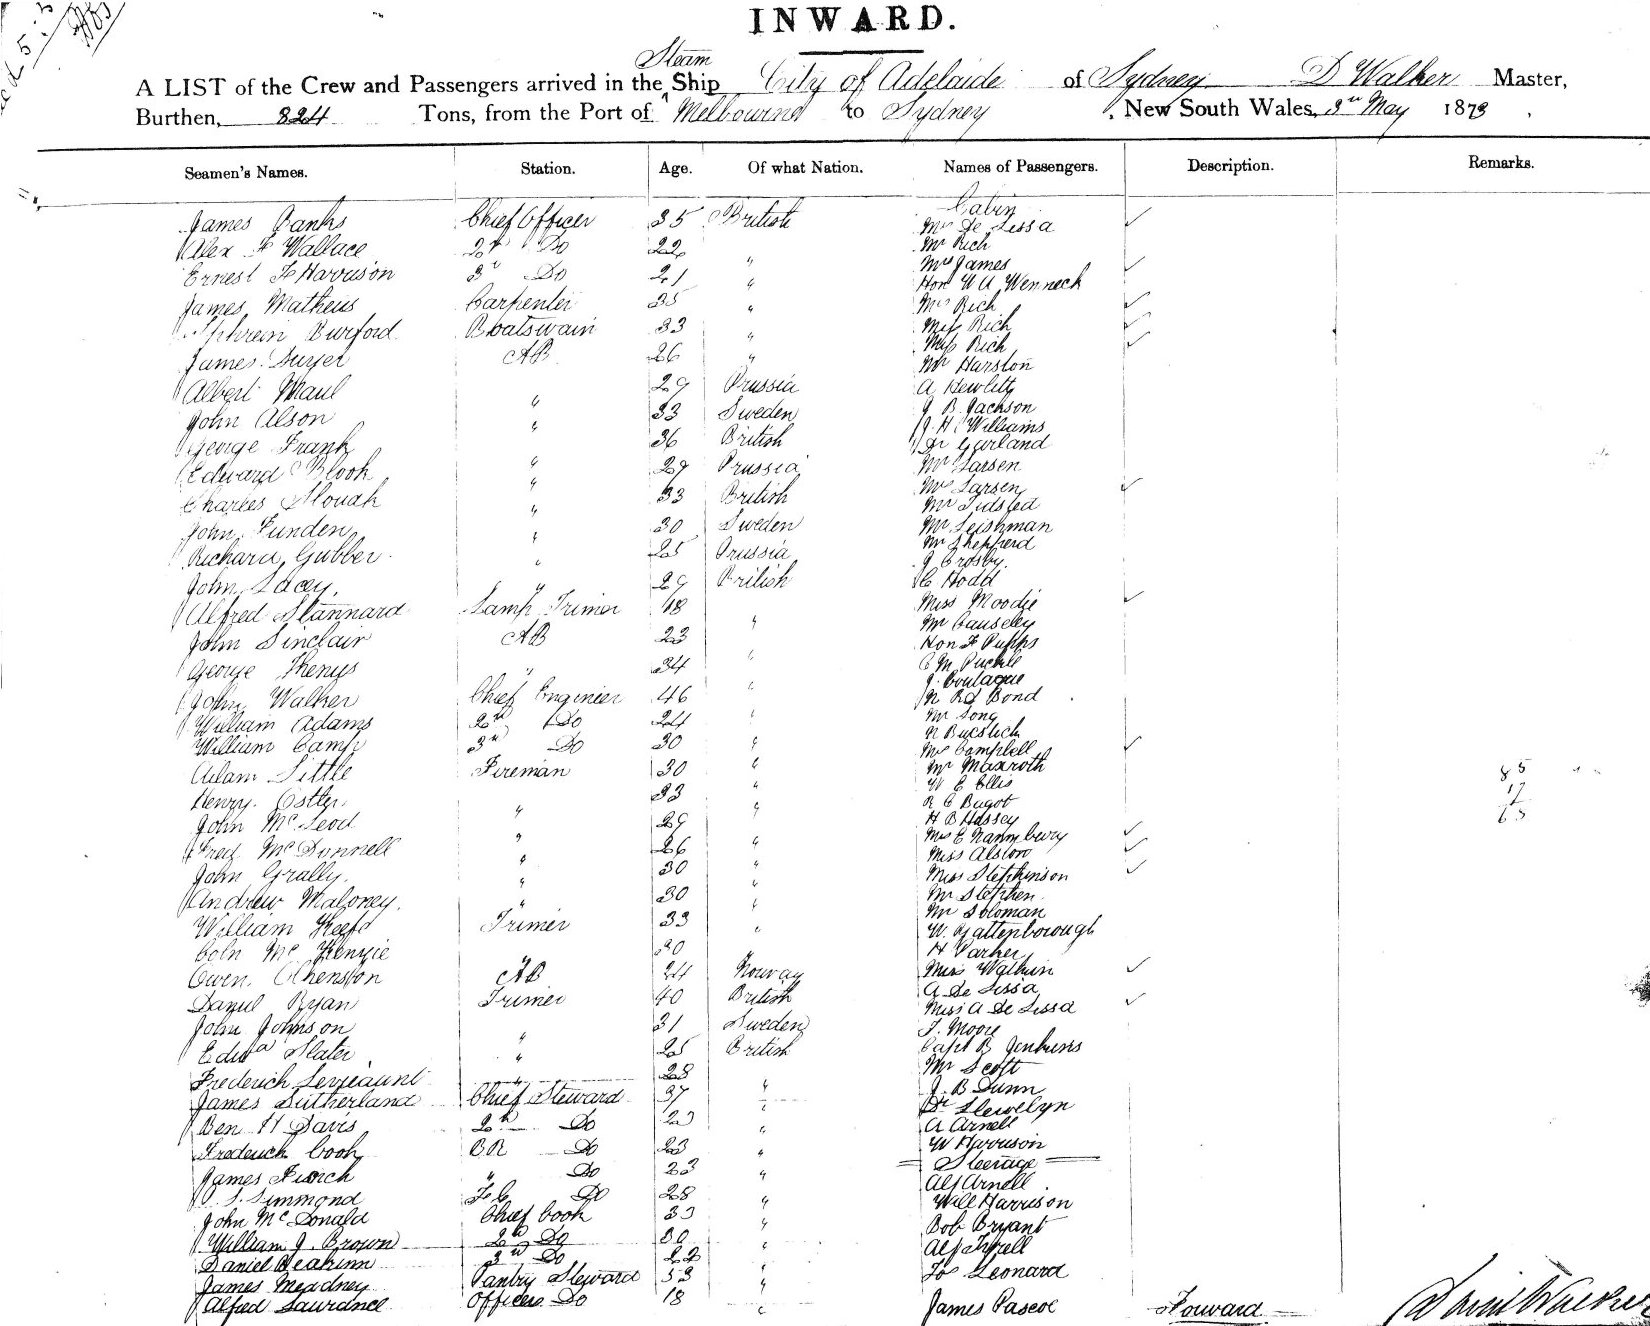 INWARD.
Steam
A LIST of the Crew and Passengers arrived in the Ship City of Adelaide of Sydney D Walker Master,
Burthen, 824 Tons, from the Port of Melbourne to Sydney, New South Wales, 3rd May 1873
Seamen's Names. Station. Age. Of what Nation. Names of Passengers. Description. Remarks.
Cabin
James Banks Chief Officer 35 British Mrs De Lissa ✓
Alex F Wallace 2d Do 22 Mr Rich
Ernest F Harrison 3d Do 21 " Mrs James ✓
Hon W A Wenneck
James Matheus Carpenter 35 " Mrs Rich ✓
Burford Boatswain 33 " Miss Rich ✓
James Duyer AB 26 " Miss Rich ✓
Mr Harston
Albert Maul " 29 Prussia A Hewlitt
John Alson " 33 Sweden J B Jackson
J H Williams
George Frank 36 British Dr Garland
Edward Blook " 29 Prussia Mr Larsen
Charles Slouah " 33 British Mrs Larsen ✓
Mr Tidsted
John Funden " 30 Sweden Mr Leishman
Mr Shepperd
Richard Gubber " 25 Prussia J Crosby
John Lacey " 29 British C Hodd
Alfred Stannard Lamp Trimer 18 Miss Moodie ✓
John Sinclair AB 23 " Mr Causeley
Hon F Pupps
George Thenys " 34 " C M Puckle
J. Coulaque
John Walker Chief Enginier 46 " R Bond
William Adams 2nd Do 24 " Mr Song
William Camp 3rd Do 30 " Mrs Campbell ✓
Adam Little Fireman 30 " Mr Maxroth 85
W E Ellis 17
Henry 33 " R C Bagot 65
John McLeod " 29 " H B Hassey
Mrs E Nannybury ✓
Fred McDonnell " 26 " Miss Alston ✓
John Grally " 30 " Miss Stephinson ✓
Andrew Maloney " 30 " Mr Stephen
Mr Soloman
William Keefe Trimer 33 " W. Gattenborough
Coln McKenzie " 30 H Varker
Owen Chenston AB 24 Norway Miss Walkin ✓
Danul Ryan Trimer 40 British A De Lissa
Miss A De Lissa ✓
John Johnson " 31 Sweden F. Moore
Edwd Slater " 25 British Capt B Jenkins
Frederick Serjeaunt " 28 Mr Scott
James Sutherland Chief Steward 37 " J. B Dunn
Dr Llewelyn
Ben H Davis 2nd Do 23 " A Arnell
Frederick Cook BR Do 23 " W Harrison
Steerage
James Finch " Do 23 " Alf Arnell
Simmond F C Do 28 " Will Harrison
John McDonald Chief Cook 33 " Bob Bryant
William J. Brown 2nd Do 30 "
Daniel Beakinn 3rd Do 22 "
James Meadney Pantry Steward 53 " Leonard
Alfred Laurance Officers Do 18 " James Pascoe Forward David Walker